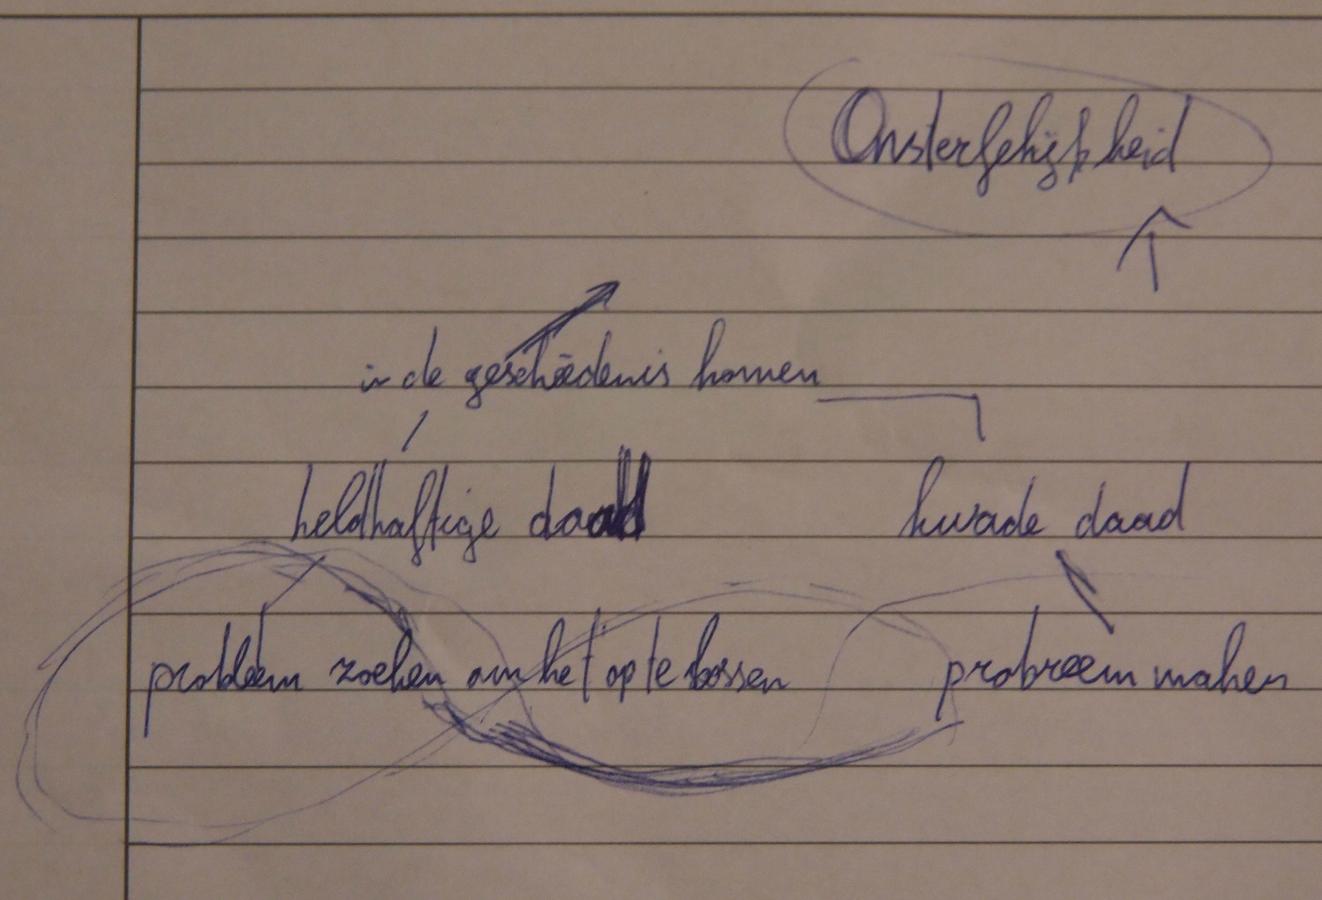 Onsterfelijkheid
in de geschiedenis komen
heldhaftige daad
kwade daad
probleem zoeken om het op te lossen
probreem maken